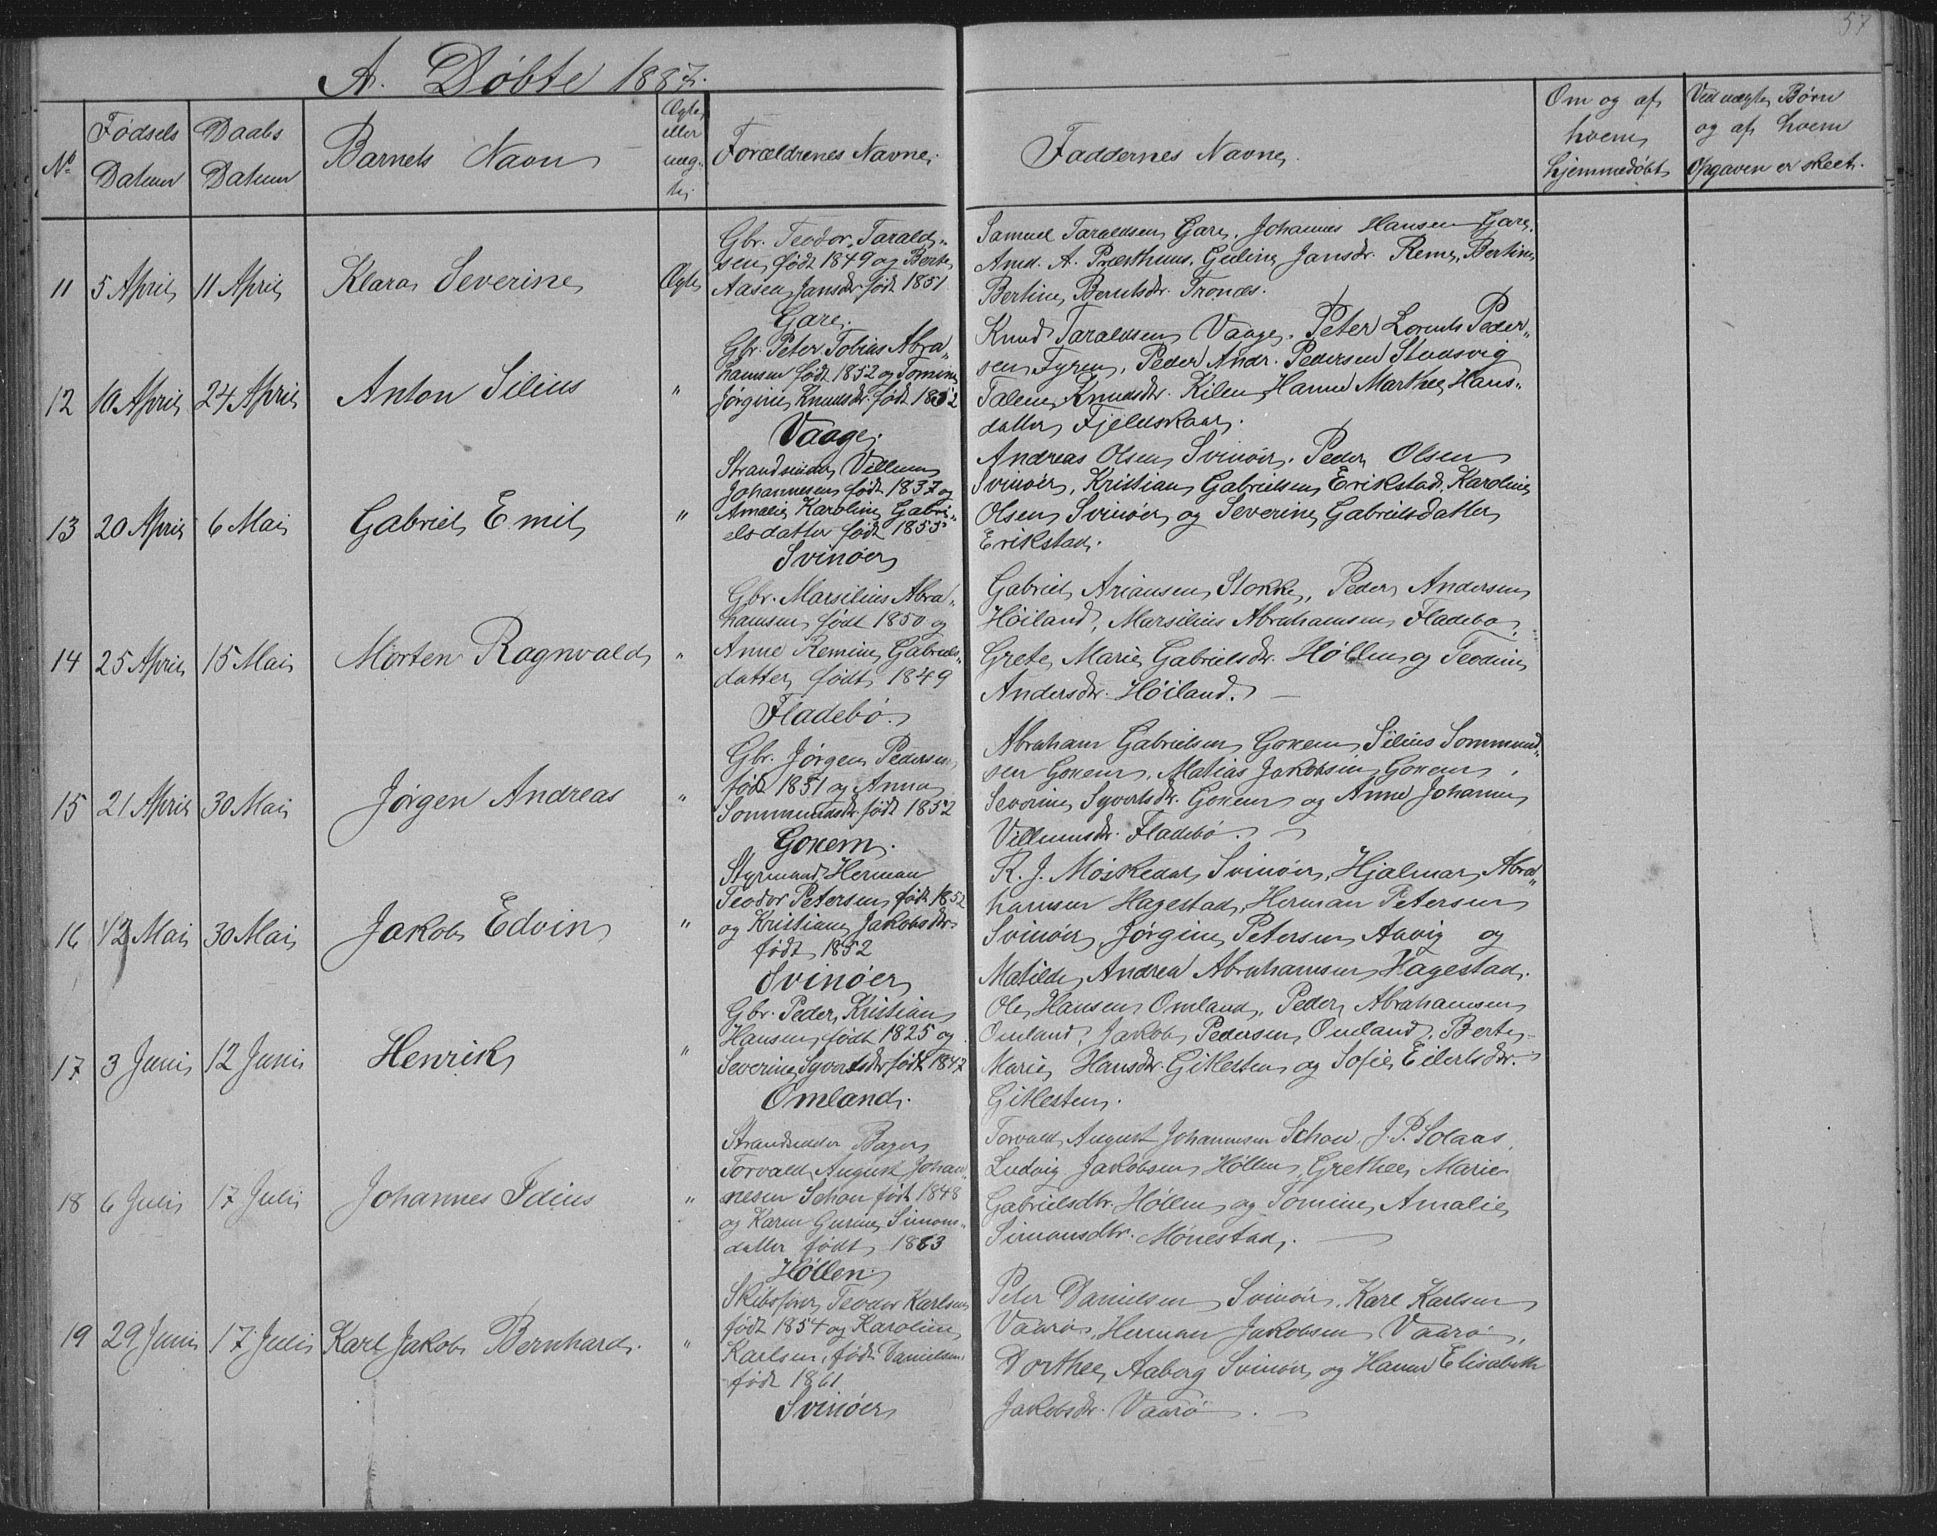 57
A. Døbte 1887.
No
Fødsels Datum
Daabs Datum
Barnets Navn
Ægte eller uægte
Forældrenes Navne
Faddernes Navne
Om og af hvem hjemmedøbt
Ved uægte Børn og af hvem Opgaven er skeet.
11 5 April 11 April Klara Severine Ægte
Gbr. Teodor Tarald-
sen født 1849 og Berte
Aasen Jansdtr. født 1851
Gare.
Samuel Taraldsen Gare, Johannes Hansen Gare,
And. A. Præsthuus, Guline Jansdr. Reme, Bertine
Bertine Berntsdtr. Trones.
12 10 April 24 April Anton Silius "
Gbr. Peter Tobias Abra-
hamsen født 1852 og Tomine
Jørgine Knudsdtr. født 1852
Vaage.
Knud Taraldsen Vaage, Peter Lorents Peder-
sen Fyren, Peder Andr. Pedersen Stadsvig
Talene Knudsdtr. Kilen, Hanne Marthe Hans-
datter Fjeldskaar.
13 20 April 6 Mai Gabriel Emil "
Strandsidder Villum
Johannesen født 1837 og
Amalie Karoline Gabri-
elsdatter født 1855
Svinøer
Andreas Olsen Svinøer, Peder Olsen
Svinøer, Kristian Gabrielsen Erikstad, Karoline
Olsen Svinøer og Severine Gabrielsdatter
Erikstad.
14 25 April 15 Mai Morten Ragnvald "
Gbr. Marsilius Abra-
hamsen født 1850 og
Anne Remine Gabriels-
datter født 1849
Fladebø.
Gabriel Ariansen Stokke, Peder Andersen
Høiland, Marsilius Abrahamsen Fladebø,
Grete Marie Gabrielsdr. Høllen og Teodine
Andersdtr. Høiland.
15 21 April 30 Mai Jørgen Andreas "
Gbr. Jørgen Pedersen
født 1851 og Anna
Sommundsdtr. født 1852
Goxem.
Abraham Gabrielsen Goxem, Silius Sommund-
sen Goxem, Matias Jakobsen Goxem,
Severine Syvertsdr. Goxem og Anne Johanne
Villumsdr. Fladebø.
16 12 Mai 30 Mai Jakob Edvin "
Styrmand Herman
Teodor Petersen født 1852
og Kristiane Jakobsdtr.
født 1852
Svinøer
K. J. Moskedal Svinøer, Hjalmar Abra-
hamsen Hagestad, Herman Petersen
Svinøer, Jørgine Petersen Aavig og
Matilde Andrea Abrahamsen Hagestad.
17 3 Juni 12 Juni Henrik "
Gbr. Peder Kristian
Hansen født 1825 og
Severine Syvertsdtr. født 1847
Omland.
Ole Hansen Omland, Peder Abrahamsen
Omland, Jakob Pedersen Omland, Berte
Marie Hansdtr. Gitlesten og Sofie Eilertsdtr.
Gitlesten.
18 6 Juli 17 Juli Johannes Idius "
Strandsidder Bager
Torvald August Johan-
nesen Schou født 1848
og Karen Gurine Simons-
datter født 1863
Høllen
Torvald August Johannesen Schou, J. P. Solaas,
Ludvig Jakobsen Høllen, Grethe Marie
Gabrielsdtr. Høllen og Tomine Amalie
Simonsdtr. Monestad.
19 29 Juni 17 Juli Karl Jakob Bernhard. "
Skibsfører Teodor Karlsen
født 1854 og Karoline
Karlsen, født Danielsen
født 1861.
Svinøer
Peter Danielsen Svinøer, Karl Karlsen
Vaarø, Herman Jakobsen Vaarø,
Dorthe Aaberg Svinøer og Hanne Elisabeth
Jakobsdtr. Vaarø.